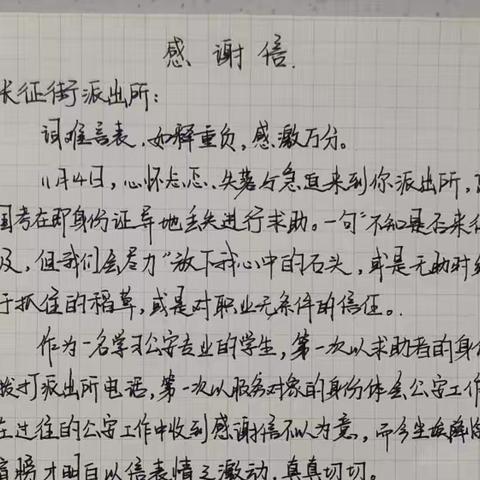 感谢信.
长征街派出所：
词难言表，如释重负，感激万分。
11月4日，心怀忐忑、失落与急迫来到你派出所，
国考在即身份证异地丢失进行求助。一句“不知是否来得
及，但我们会尽力”放下我心中的石头，或是无助时终
于抓住的稻草，或是对职业无条件的信任。
作为一名学习公安专业的学生，第一次以求助者的身份
拨打派出所电话，第一次以服务对象的身份体会公安工作
在过往的公安工作中收到感谢信不以为意，而今坐
才明白以信表情之激动，真真切切。